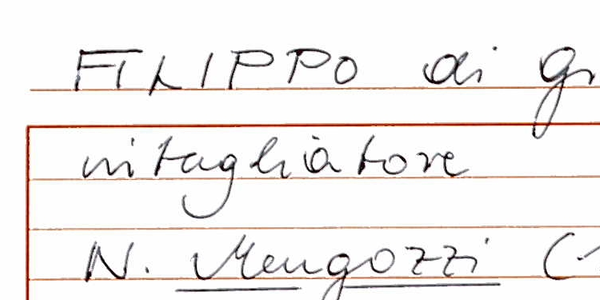 FILIPPO di
intagliatore
N. Mengozzi